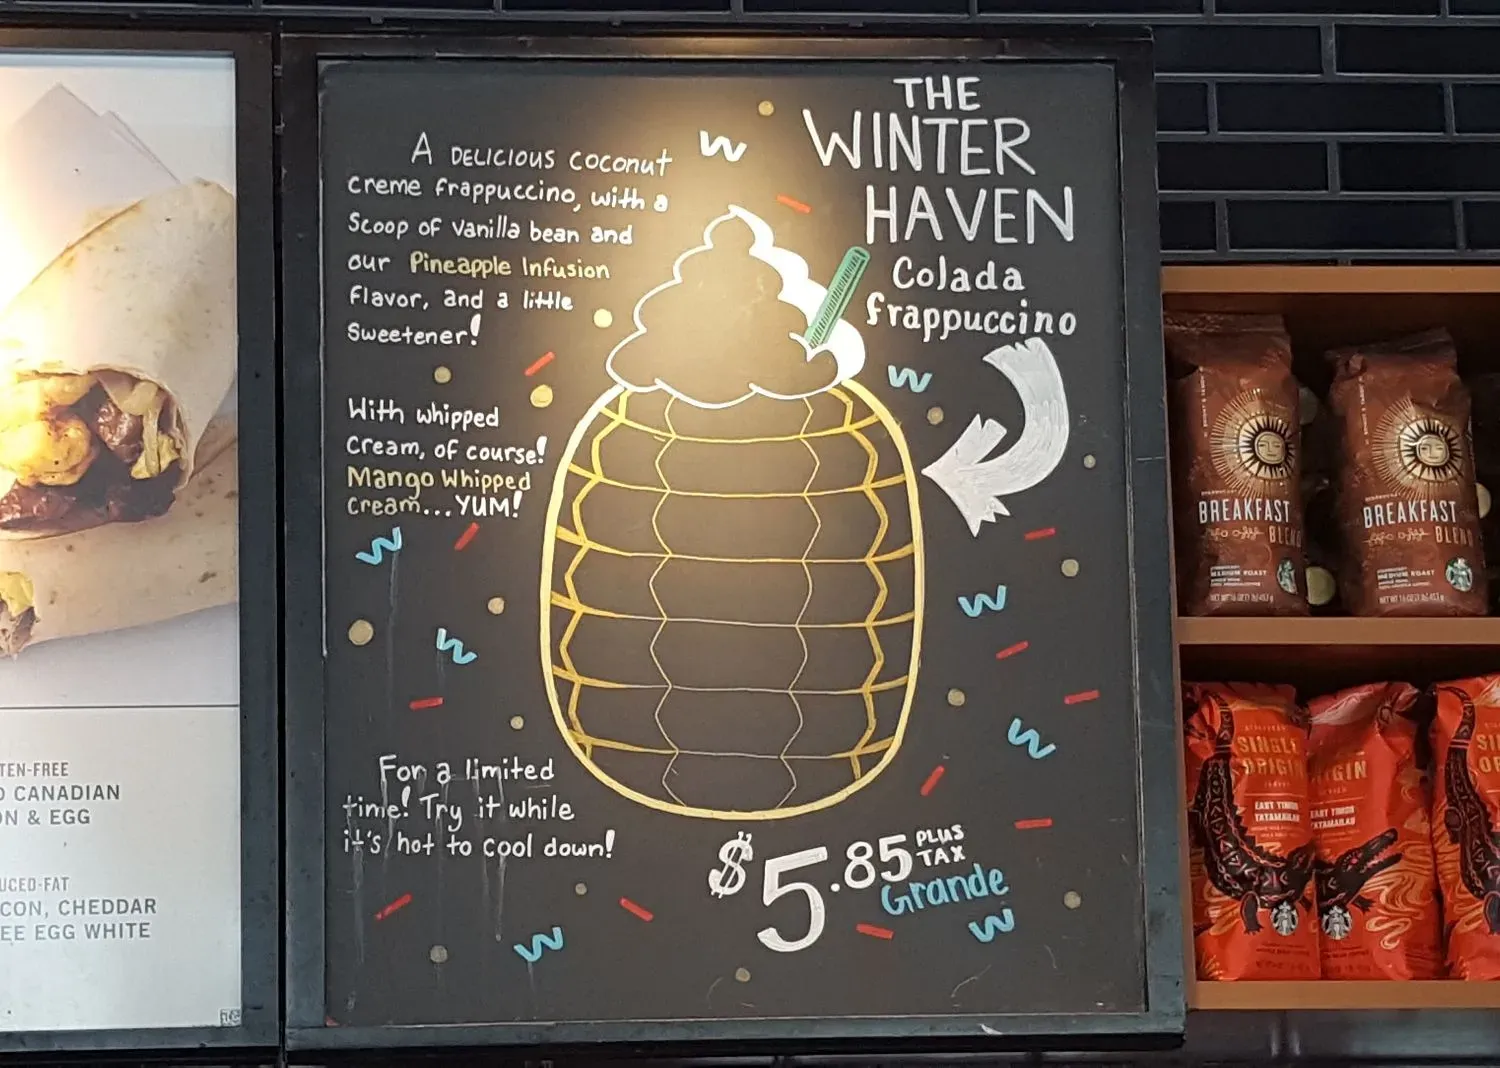 A DELICIOUS coconut
creme frappuccino, with a
Scoop of vanilla bean and
our Pineapple Infusion
flavor, and a little
Sweetener!
With whipped
Cream, of course!
Mango Whipped
Cream...YUM!
For a limited
time! Try it while
it's hot to cool down!
THE
WINTER
HAVEN
Colada
frappuccino
$5.85 PLUS
TAX
Grande
TEN-FREE
CANADIAN
ON & EGG
UCED-FAT
CON, CHEDDAR
EE EGG WHITE
BREAKFAST
BLEND
MEDIUM ROAST
BREAKFAST
BLEND
MEDIUM ROAST
SINGLE
ORIGIN
EAST TIMOR
TATAMAILAU
IGIN
EAST TIMOR
TATAMAILAU